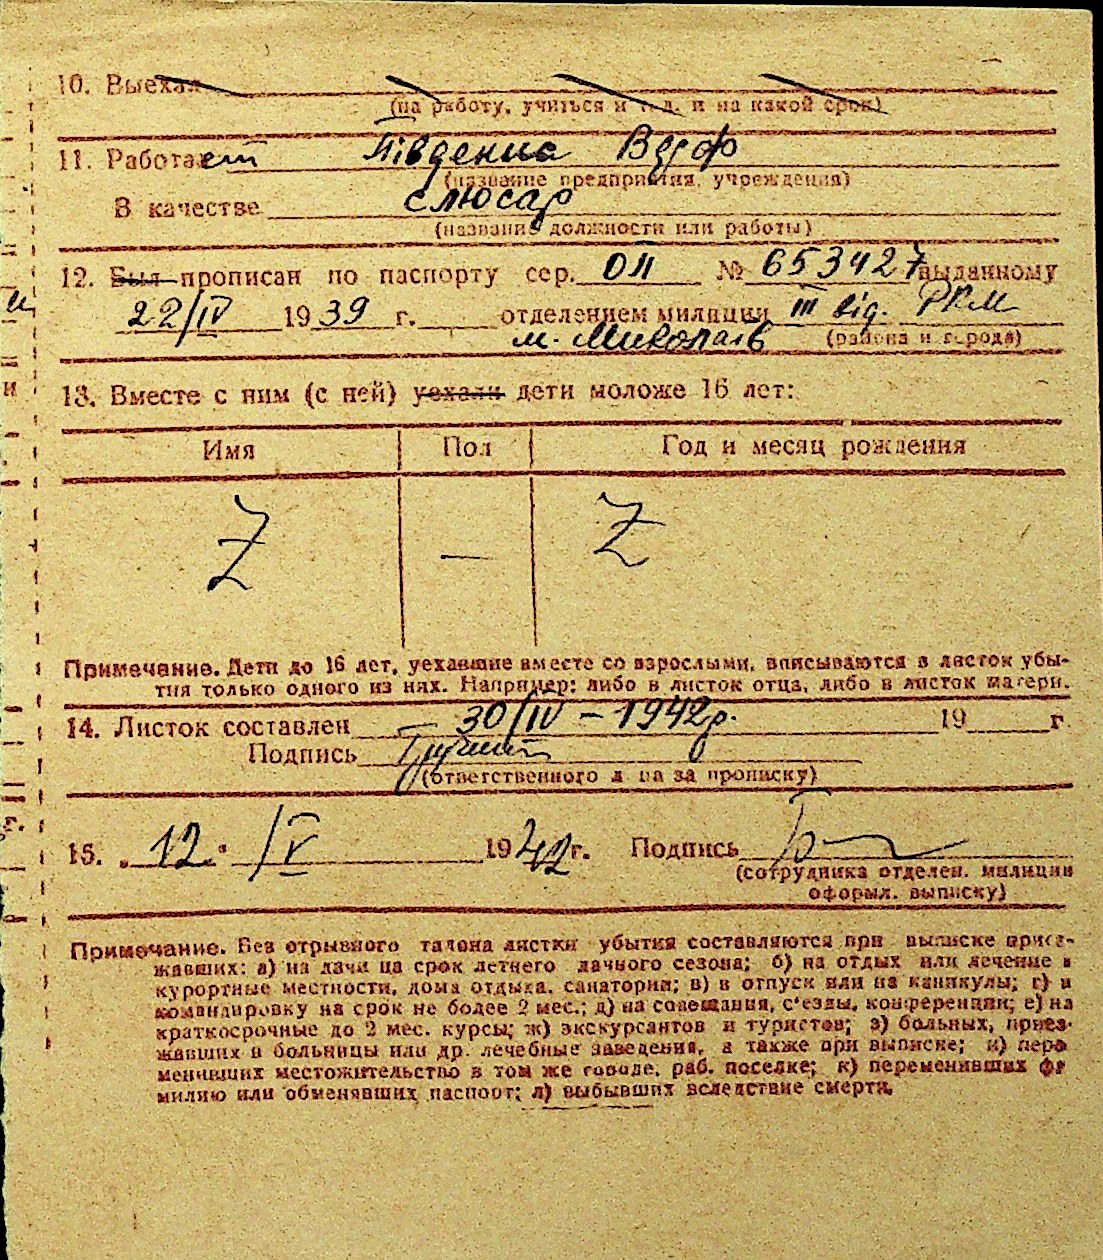 10. Выехал
(на работу, учиться и т. д. и на какой срок)
11. Работает Південна Верф
(название предприятия, учреждения)
В качестве слюсар
(название должности или работы)
12. Был прописан по паспорту сер. ОЛ № 653427 выданному
22/IV 1939 г. отделением милиции III від. РКМ
м. Миколаїв (района и города)
13. Вместе с ним (с ней) уехали дети моложе 16 лет:
Имя Пол Год и месяц рождения
Z — Z
Примечание. Дети до 16 лет, уехавшие вместе со взрослыми, вписываются в листок убы-
тия только одного из них. Например: либо в листок отца, либо в листок матери.
14. Листок составлен 30/IV – 1942 р. 19 г.
Подпись
(ответственного л ца за прописку)
15. „12" /V 1942 г. Подпись
(сотрудника отделен. милиции
оформл. выписку)
Примечание. Без отрывного талона листки убытия составляются при выписке приез-
жавших: а) на дачи на срок летнего дачного сезона; б) на отдых или лечение в
курортные местности, дома отдыха, санатории; в) в отпуск или на каникулы; г) в
командировку на срок не более 2 мес.; д) на совещания, с'езды, конференции; е) на
краткосрочные до 2 мес. курсы; ж) экскурсантов и туристов; з) больных, приез-
жавших в больницы или др. лечебные заведения, а также при выписке; и) пере
менивших местожительство в том же городе, раб. поселке; к) переменивших фа
милию или обменявших паспорт; л) выбывших вследствие смерти.